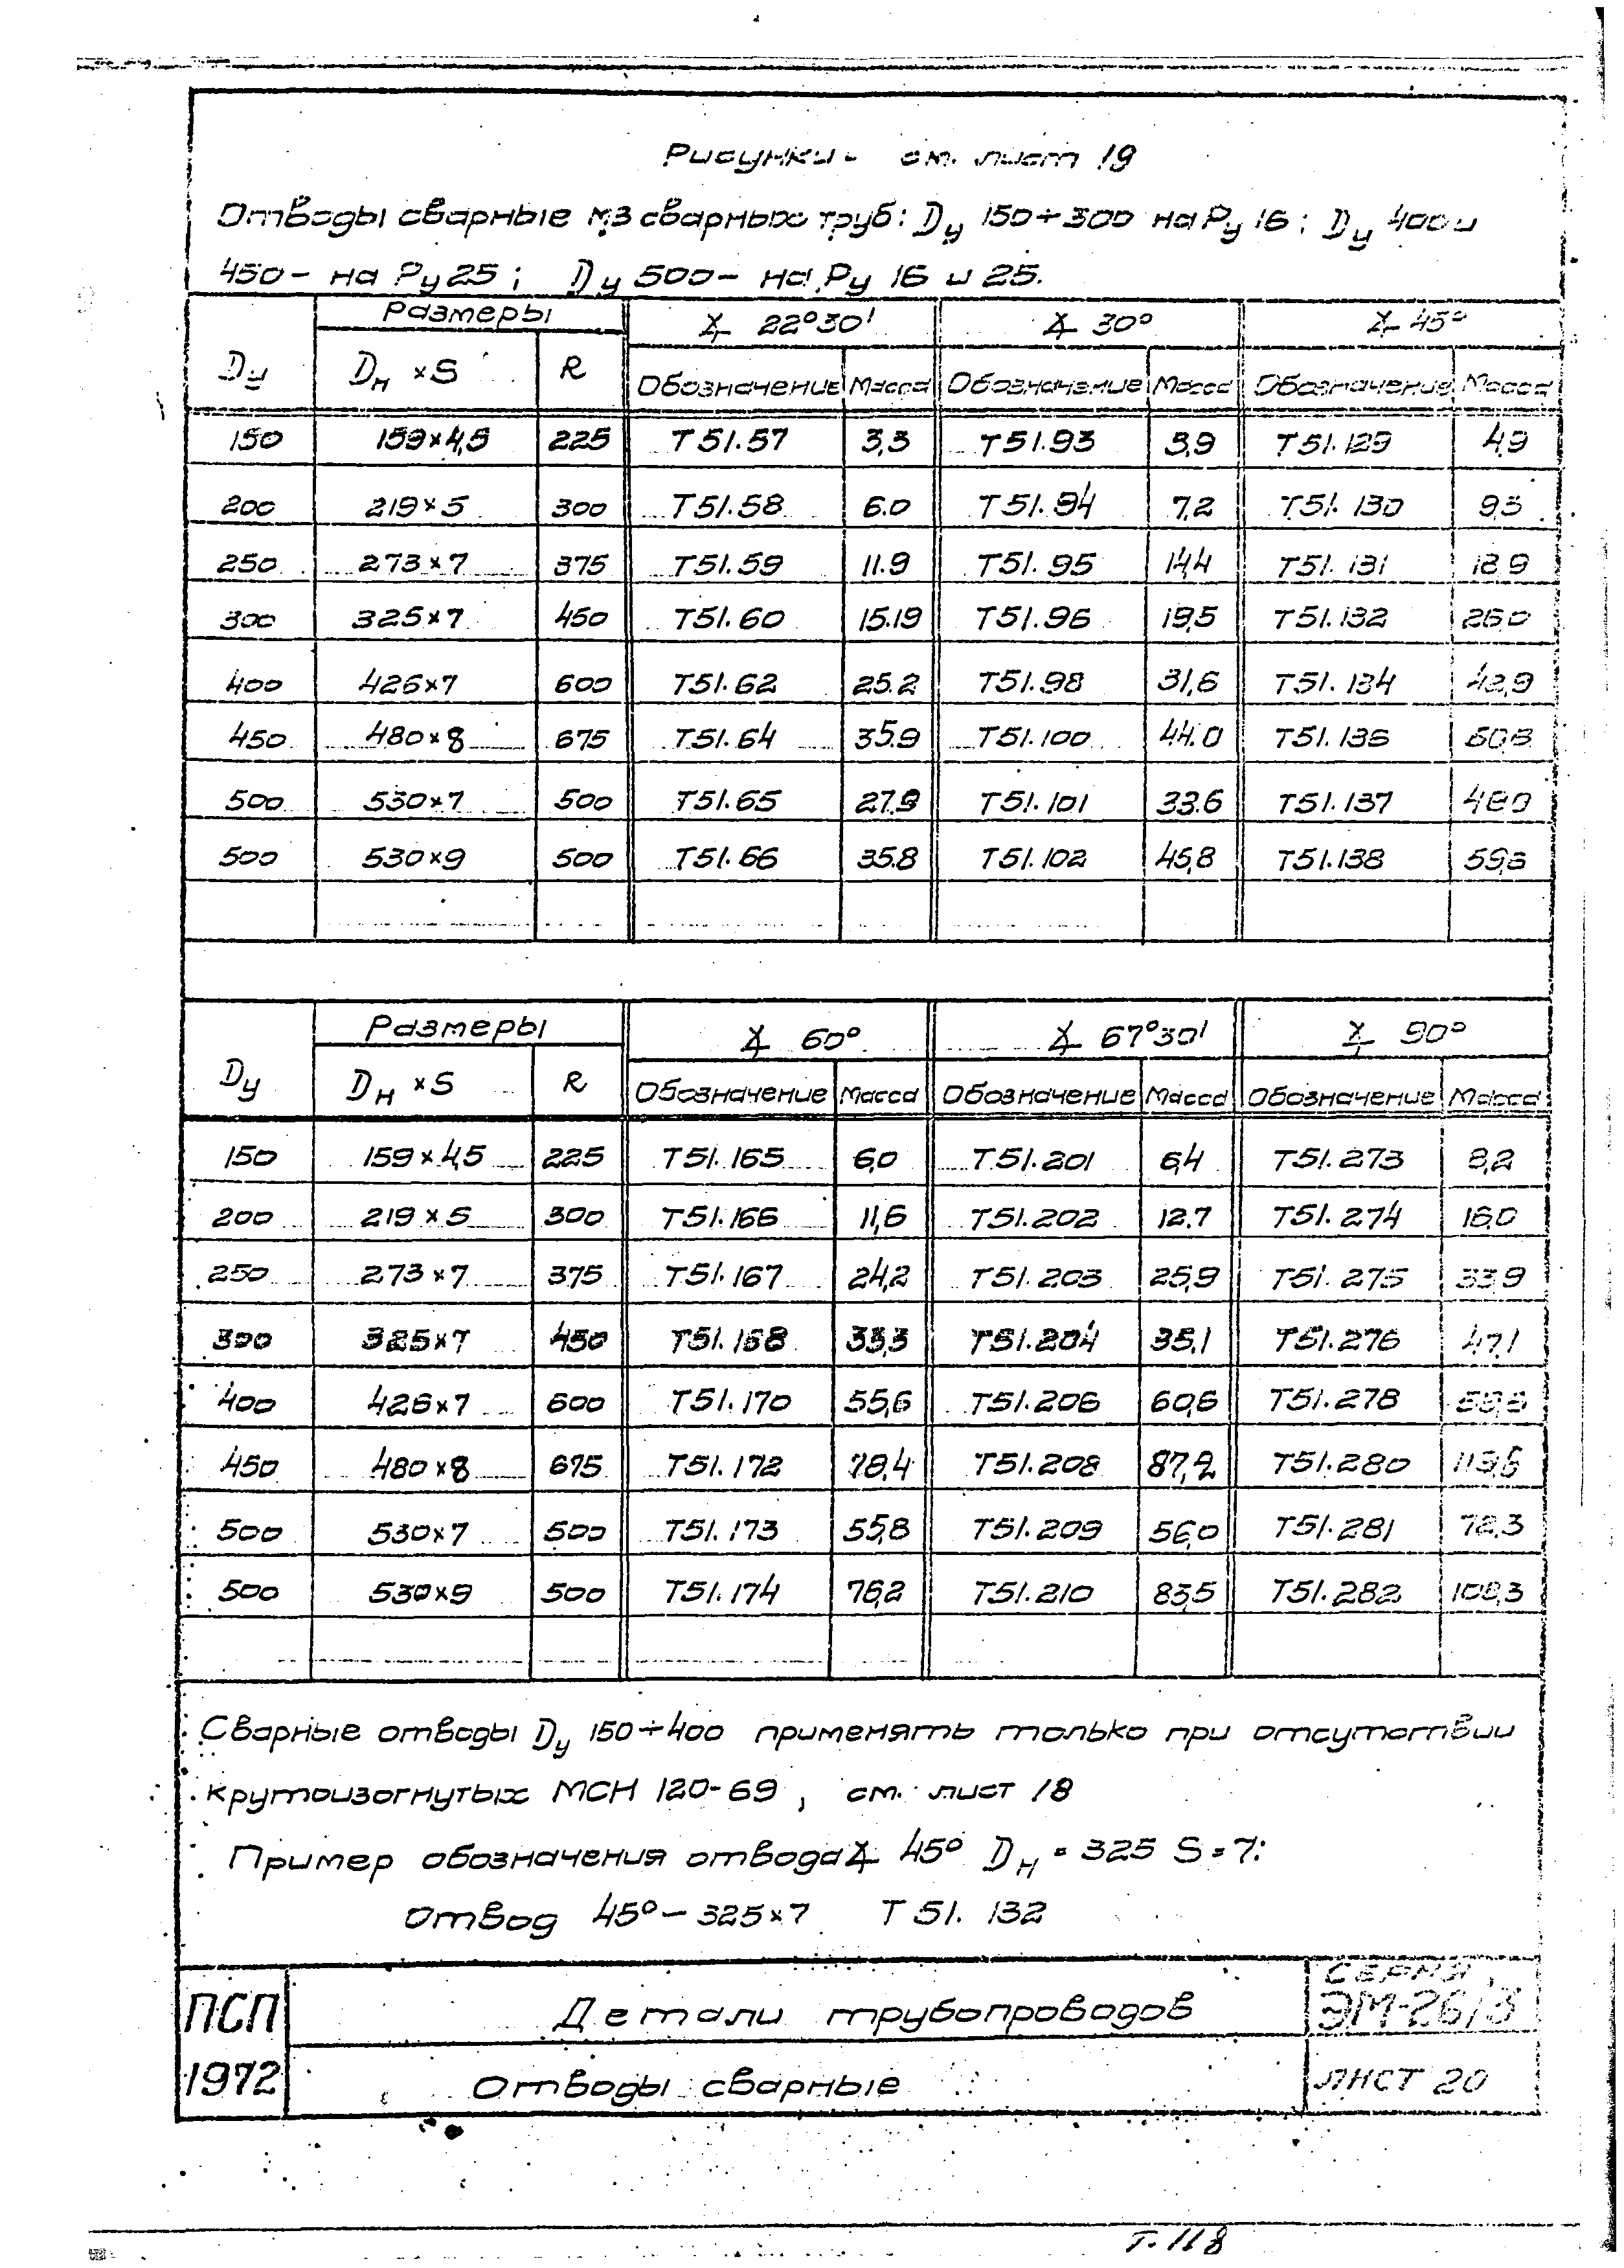 Рисунки - см. лист 19
Отводы сварные из сварных труб: Dу 150÷300 на Ру 16; Dу 400 и
450 - на Ру 25; Dу 500 - на Ру 16 и 25.
Dу Размеры ∡ 22°30' ∡ 30° ∡ 45°
Dн ×S R Обозначение Масса Обозначение Масса Обозначение Масса
150 159×4,5 225 Т51.57 3,3 Т51.93 3,9 Т51.129 4,9
200 219×5 300 Т51.58 6.0 Т51.94 7,2 Т51.130
250 273×7 375 Т51.59 11.9 Т51.95 14,4 Т51.131 18,9
300 325×7 450 Т51.60 15.19 Т51.96 19,5 Т51.132 26,0
400 426×7 600 Т51.62 25.2 Т51.98 31,6 Т51.134
450 480×8 675 Т51.64 35.9 Т51.100 44.0 Т51.136
500 530×7 500 Т51.65 27.9 Т51.101 33.6 Т51.137
500 530×9 500 Т51.66 35.8 Т51.102 45,8 Т51.138
Dу Размеры ∡ 60° ∡ 67°30' ∡ 90°
Dн ×S R Обозначение Масса Обозначение Масса Обозначение Масса
150 159×4,5 225 Т51.165 6,0 Т51.201 6,4 Т51.273 8,2
200 219×5 300 Т51.166 11,6 Т51.202 12.7 Т51.274 16,0
250 273×7 375 Т51.167 24,2 Т51.203 25,9 Т51.275 33,9
300 325×7 450 Т51.168 33,3 Т51.204 35,1 Т51.276 47,1
400 426×7 600 Т51.170 55,6 Т51.206 60,6 Т51.278
450 480×8 675 Т51.172 78,4 Т51.208 87,2 Т51.280
500 530×7 500 Т51.173 55,8 Т51.209 56,0 Т51.281 72,3
500 530×9 500 Т51.174 76,2 Т51.210 83,5 Т51.282 108,3
Сварные отводы Dу 150÷400 применять только при отсутствии
крутоизогнутых МСН 120-69, см. лист 18
Пример обозначения отвода ∡ 45° Dн = 325 S = 7:
Отвод 45° - 325×7 Т51.132
ПСП
1972
Детали трубопроводов
Отводы сварные
СЕРИЯ
ЭМ-26/3
ЛИСТ 20
Т.118